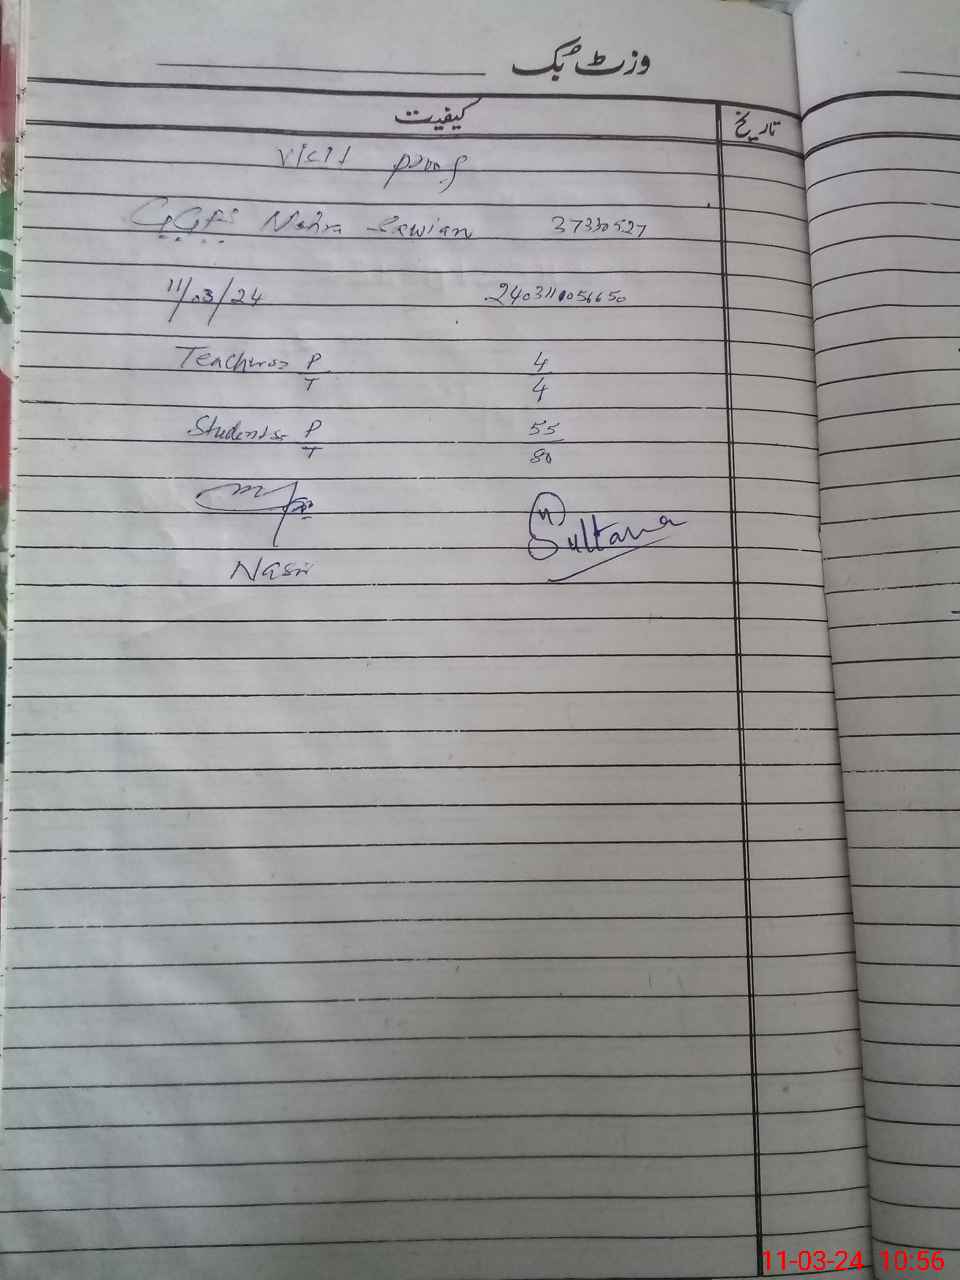 وزٹ بُک
کیفیت تاریخ
Visit proof
G.G.P.S Nahra Sawian 37330527
11/03/24
Teachers P 4
T 4
Students P 55
T 80
Sultana
Nasir
11-03-24 10:56